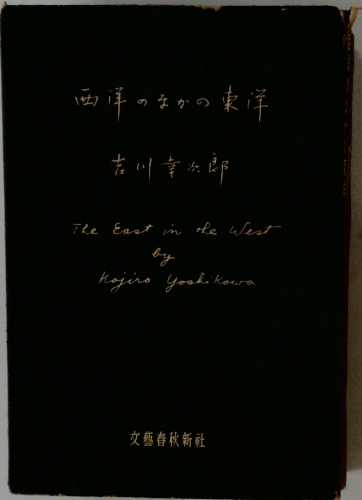 西洋のなかの東洋
吉川幸次郎
The East in the West
by
Kojiro Yoshikawa
文藝春秋新社